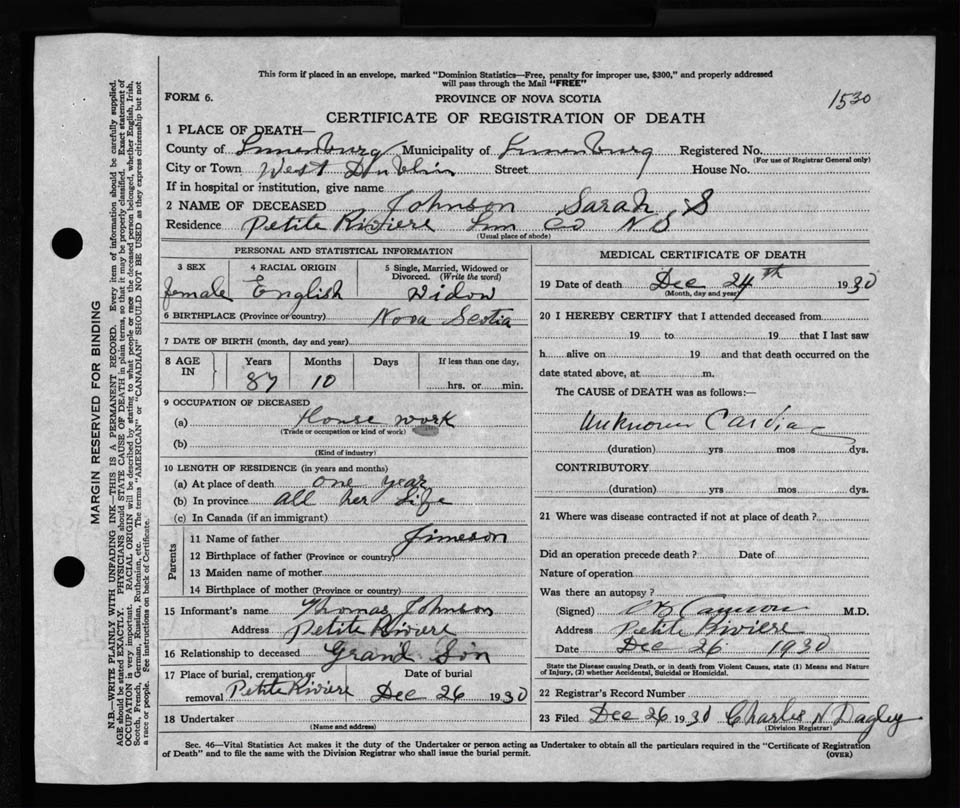 This form if placed in an envelope, marked "Dominion Statistics—Free, penalty for improper use, $300," and properly addressed
will pass through the Mail "FREE"
FORM 6.
PROVINCE OF NOVA SCOTIA
1530
CERTIFICATE OF REGISTRATION OF DEATH
1 PLACE OF DEATH—
County of Lunenburg Municipality of Lunenburg Registered No.
(For use of Registrar General only)
City or Town West Dublin Street House No.
If in hospital or institution, give name
2 NAME OF DECEASED Johnson Sarah S
Residence Petite Riviere Lun Co NS
(Usual place of abode)
PERSONAL AND STATISTICAL INFORMATION
3 SEX
4 RACIAL ORIGIN
5 Single, Married, Widowed or
Divorced. (Write the word)
female English Widow
6 BIRTHPLACE (Province or country) Nova Scotia
7 DATE OF BIRTH (month, day and year)
8 AGE
IN
Years Months Days If less than one day,
87 10 hrs. or min.
9 OCCUPATION OF DECEASED
(a) House work
(Trade or occupation or kind of work)
(b)
(Kind of industry)
10 LENGTH OF RESIDENCE (in years and months)
(a) At place of death one year
(b) In province all her life
(c) In Canada (if an immigrant)
Parents
11 Name of father Jimeson
12 Birthplace of father (Province or country)
13 Maiden name of mother
14 Birthplace of mother (Province or country)
15 Informant's name Thomas Johnson
Address Petite Riviere
16 Relationship to deceased Grand Son
17 Place of burial, cremation or Date of burial
removal Petite Riviere Dec 26 1930
18 Undertaker
(Name and address)
MEDICAL CERTIFICATE OF DEATH
19 Date of death Dec 24th 1930
(Month, day and year)
20 I HEREBY CERTIFY that I attended deceased from
19 to 19 that I last saw
h alive on 19 and that death occurred on the
date stated above, at m.
The CAUSE of DEATH was as follows:—
Unknown Cardiac
(duration) yrs mos dys.
CONTRIBUTORY
(duration) yrs mos dys.
21 Where was disease contracted if not at place of death?
Did an operation precede death? Date of
Nature of operation
Was there an autopsy?
(Signed) M.D.
Address Petite Riviere
Date Dec 26 1930
State the Disease causing Death, or in death from Violent Causes, state (1) Means and Nature
of Injury, (2) whether Accidental, Suicidal or Homicidal.
22 Registrar's Record Number
23 Filed Dec 26 1930 Charles N Dagley
(Division Registrar)
Sec. 46—Vital Statistics Act makes it the duty of the Undertaker or person acting as Undertaker to obtain all the particulars required in the "Certificate of Registration
of Death" and to file the same with the Division Registrar who shall issue the burial permit.
(OVER)
MARGIN RESERVED FOR BINDING
N.B.—WRITE PLAINLY WITH UNFADING INK—THIS IS A PERMANENT RECORD. Every item of information should be carefully supplied.
AGE should be stated EXACTLY. PHYSICIANS should STATE CAUSE OF DEATH in plain terms, so that it may be properly classified. Exact statement of
OCCUPATION is very important. RACIAL ORIGIN will be described by stating to what people or race the deceased person belonged, whether English, Irish,
Scotch, French, German, Russian, Ruthenian, etc. The terms "AMERICAN" or "CANADIAN" SHOULD NOT BE USED as they express citizenship but not
a race or people. See instructions on back of Certificate.